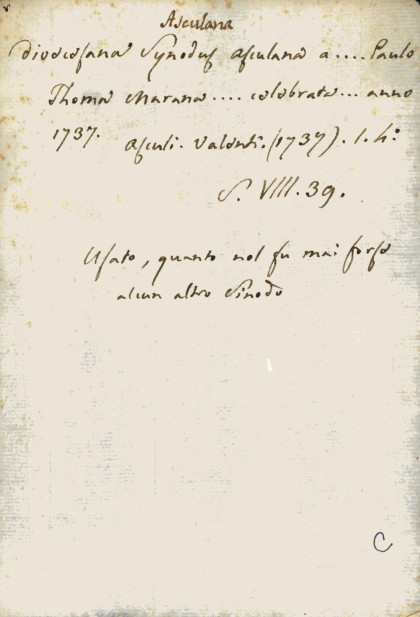 Asculana
Dioecesana Synodus Asculana a .... Paulo
Thoma Marana .... celebrata ... anno
1737. Asculi. Valenti. (1737). 1. 4º
S. VIII. 39.
Usato, quanto nol fu mai forse
alcun altro Sinodo
C